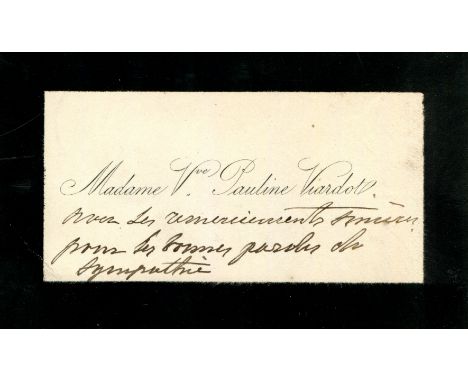 Madame Vve Pauline Viardot.
avec ses remerciements sincères
pour les bonnes paroles de
sympathie